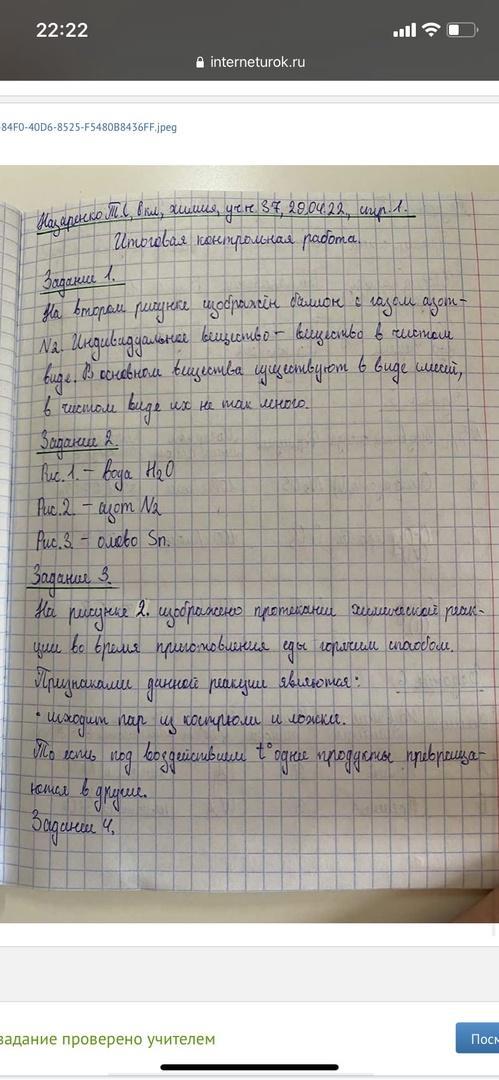 22:22
interneturok.ru
-84F0-40D6-8525-F5480B8436FF.jpeg
Назаренко Т.С, 8 кл, химия, уч.н. 37, 29.04.22, стр. 1.
Итоговая контрольная работа.
Задание 1.
На втором рисунке изображён баллон с газом азот-
N2. Индивидуальное вещество - вещество в чистом
виде. В основном вещества существуют в виде смесей,
в чистом виде их не так много.
Задание 2.
Рис. 1. - вода H2O
Рис. 2. - азот N2
Рис. 3. - олово Sn.
Задание 3.
На рисунке 2. изображено протекании химической реак-
ции во время приготовления еды горячим способом.
Признаками данной реакции являются:
• исходит пар из кострюли и ложки.
То есть под воздействием t° одни продукты превраща-
ются в другие.
Задание 4.
задание проверено учителем
Посм